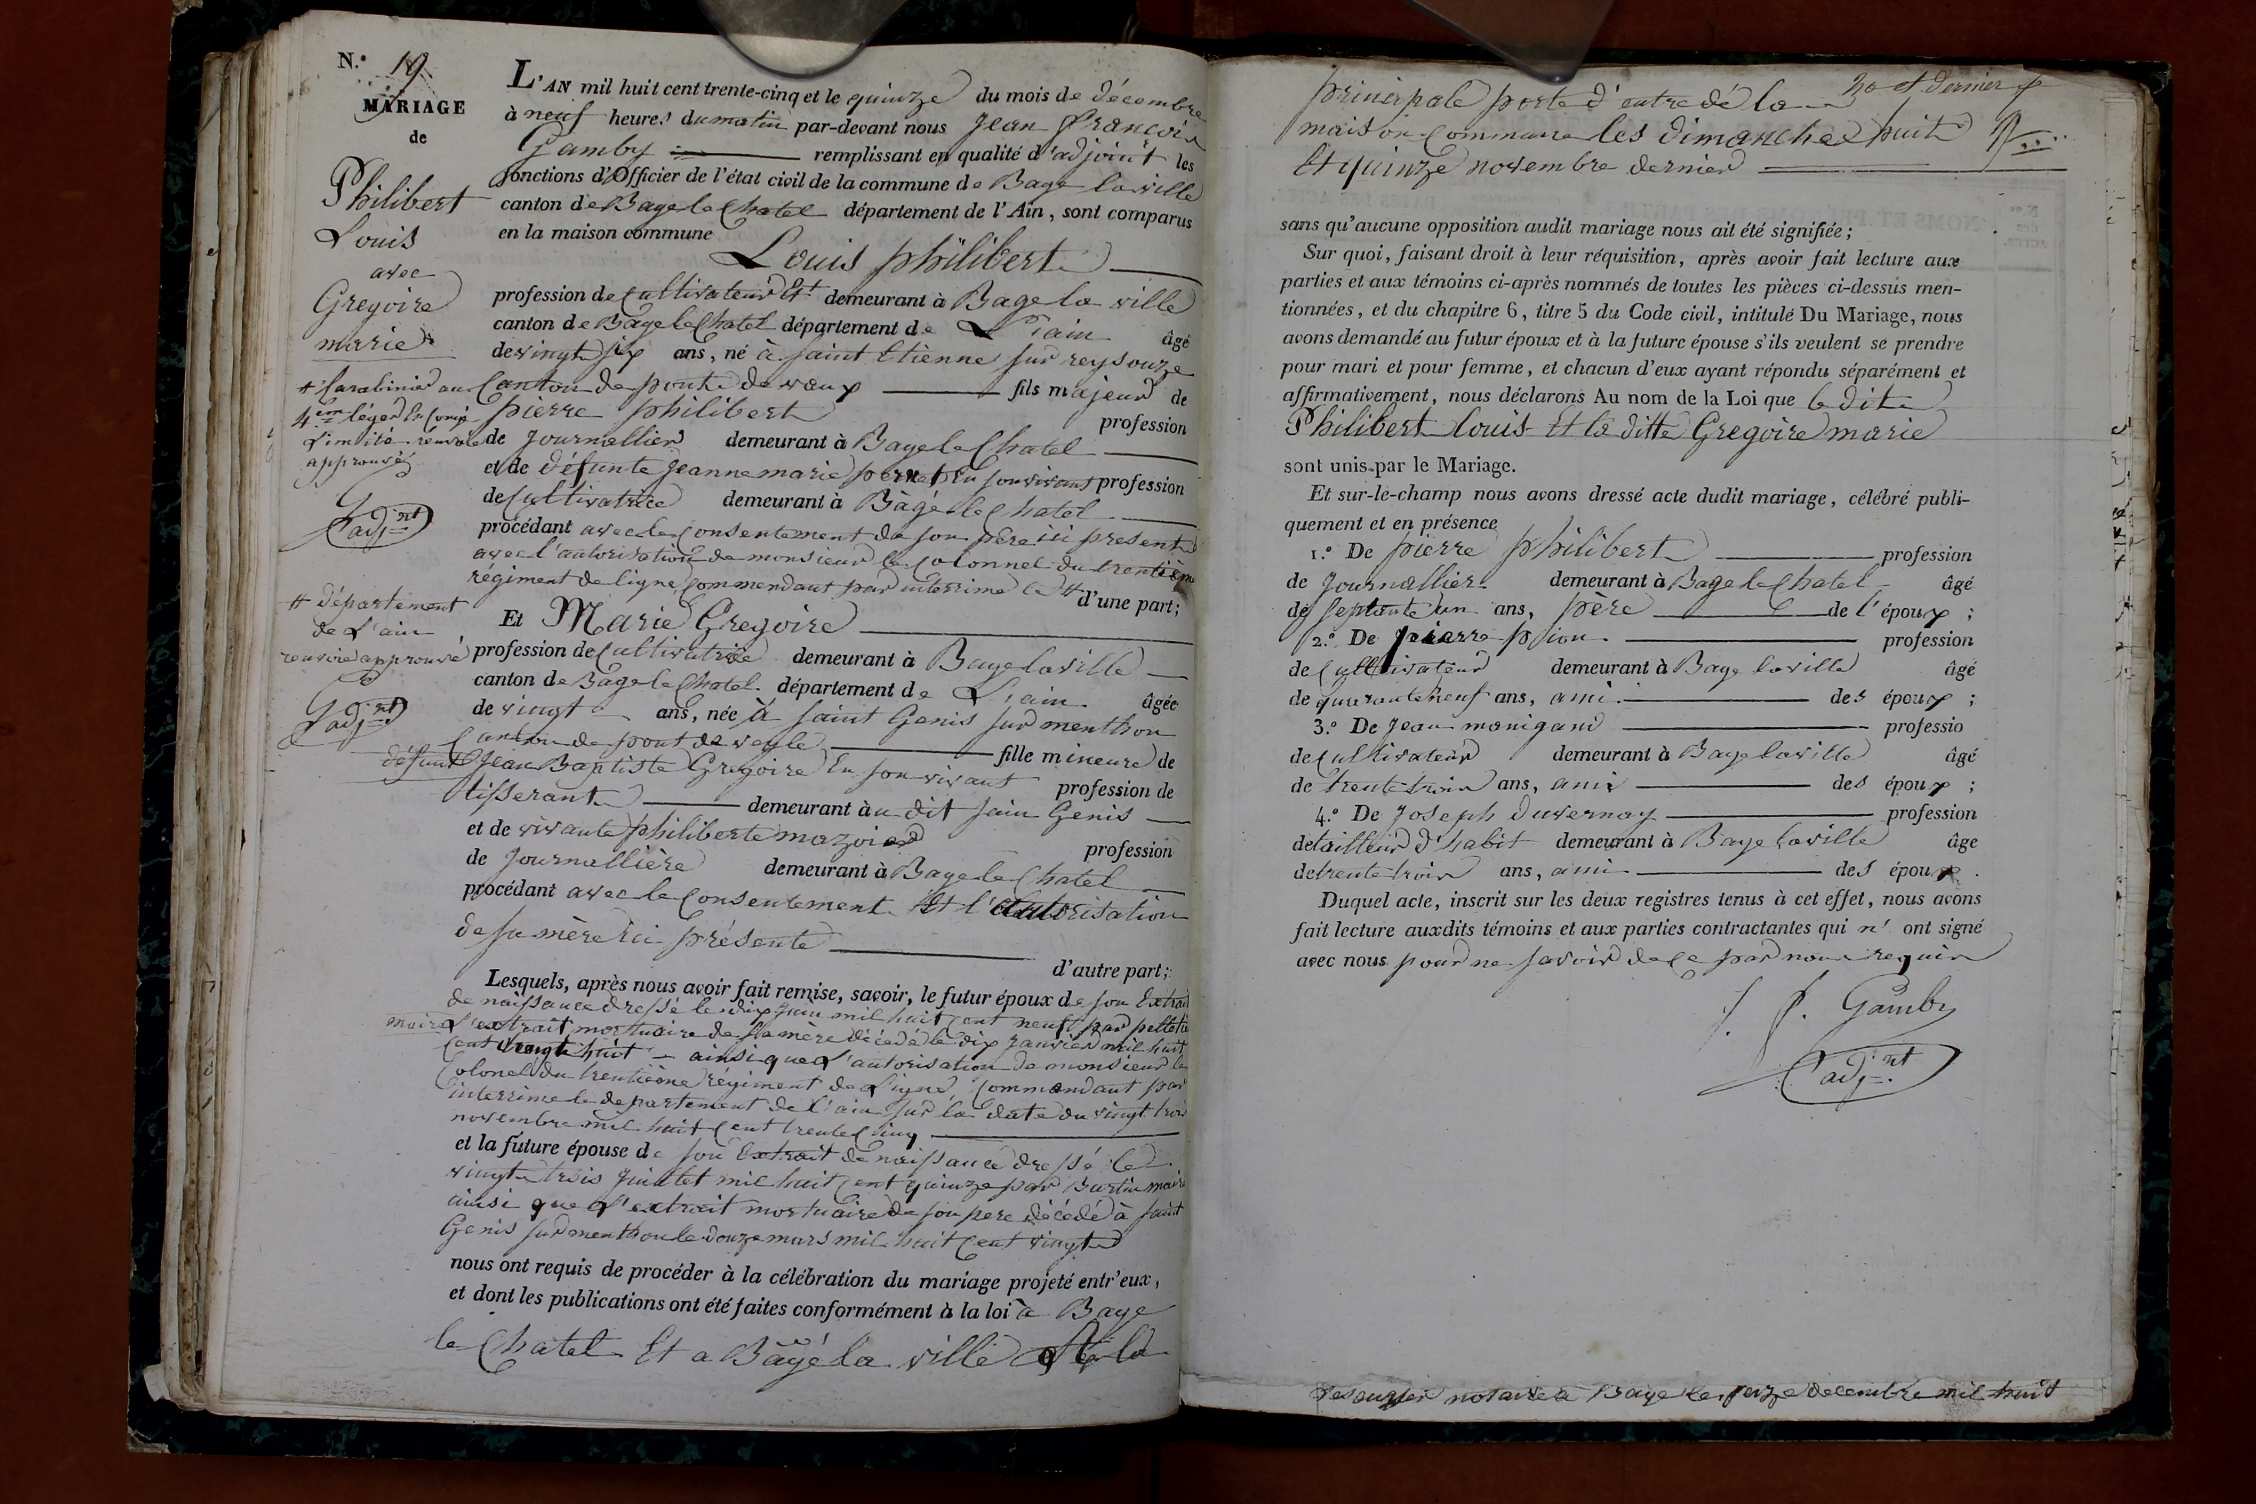 N.° 19
MARIAGE
de
Philibert
Louis
avec
Gregoire
marie
# Carabinier au
4em léger En Congé
Limité renvoie
approuvé
G
adjnt
# département
de L'ain
renvoie approuvé
G
adjnt
L'AN mil huit cent trente-cinq et le quinze du mois de décembre
à neuf heures du matin par-devant nous Jean François
Gamby remplissant en qualité d'adjoint les
fonctions d'Officier de l'état civil de la commune de Bage laville
canton de Bage le Chatel département de l'Ain, sont comparus
en la maison commune
Louis philibert
profession de Cultivateur Et # demeurant à Bage la ville
canton de Bage le Chatel département de L'ain âgé
de vingt six ans, né à saint Etienne sur reysouze
Canton de pont de vaux fils majeur de
pierre philibert profession
de Journallier demeurant à Bage le Chatel
et de défunte Jeanne marie pernet En son vivant profession
de Cultivatrice demeurant à Bagé le Chatel
procédant avec le Consentement de son père ici present
avec l'autorisation de monsieur le Colonnel du trentième
régiment de ligne Commendant par interrime le # d'une part;
Et Marie Gregoire
profession de Cultivatrice demeurant à Bage laville
canton de Bage le Chatel département de L'ain âgée
de vingt ans, née à saint Genis sur menthon
Canton de pont de veyle fille mineure de
défunt Jean Baptiste Gregoire En son vivant profession de
tisserant demeurant au dit sain Genis
et de vivante philiberte mazoier profession
de Journallière demeurant à Bage le Chatel
procédant avec le Consentement Et l'autorisation
de sa mère ici présente
d'autre part;
Lesquels, après nous avoir fait remise, savoir, le futur époux de son Extrait
de naissance dressé le dix juin mil huit Cent neuf par pelletier
maire L'extrait mortuaire de sa mère décédé le dix janvier mil huit
Cent vingt huit ainsi que L'autorisation de monsieur le
Colonel du trentième régiment de Ligne, Commandant par
interrime le departement de l'ain sur la date du vingt trois
novembre mil huit Cent trente Cinq
et la future épouse de son Extrait de naissance dressé le
vingt trois Juillet mil huit Cent quinze par Burtin maire
ainsi que L'extrait mortuaire de son pere décédé à saint
Genis sur menthon le douze mars mil huit Cent vingt
nous ont requis de procéder à la célébration du mariage projeté entr'eux,
et dont les publications ont été faites conformément à la loi à Bage
le Chatel Et a Bâgé la ville à la
20 et dernier
principale porte d'entre dé la
maison Commune les dimanches huit
Et quinze novembre dernier
sans qu'aucune opposition audit mariage nous ait été signifiée;
Sur quoi, faisant droit à leur réquisition, après avoir fait lecture aux
parties et aux témoins ci-après nommés de toutes les pièces ci-dessus men-
tionnées, et du chapitre 6, titre 5 du Code civil, intitulé Du Mariage, nous
avons demandé au futur époux et à la future épouse s'ils veulent se prendre
pour mari et pour femme, et chacun d'eux ayant répondu séparément et
affirmativement, nous déclarons Au nom de la Loi que le dit
Philibert Louis Et la ditte Gregoire marie
sont unis par le Mariage.
Et sur-le-champ nous avons dressé acte dudit mariage, célébré publi-
quement et en présence
1.° De pierre philibert profession
de Journallier demeurant à Bage le Chatel âgé
de septante un ans, père de l'époux;
2.° De pierre pion profession
de Cultivateur demeurant à Bage laville âgé
de quarante neuf ans, ami des époux;
3.° De Jean monigand professio
de Cultivateur demeurant à Bage laville âgé
de trente trois ans, ami des époux;
4.° De Joseph duvernay profession
de tailleur d'habit demeurant à Bage laville âge
de trente trois ans, ami des époux.
Duquel acte, inscrit sur les deux registres tenus à cet effet, nous avons
fait lecture auxdits témoins et aux parties contractantes qui n' ont signé
avec nous pour ne savoir de ce par nous requis
J. f. Gamby
adjnt
notaire à Bage le seize decembre mil huit